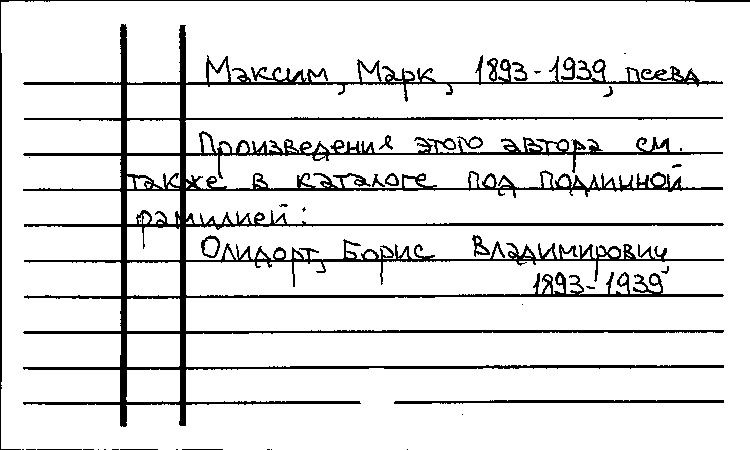 Максим, Марк, 1893-1939, псевд
Произведения этого автора см.
также в каталоге под подлинной
фамилией:
Олидорт, Борис Владимирович,
1893-1939